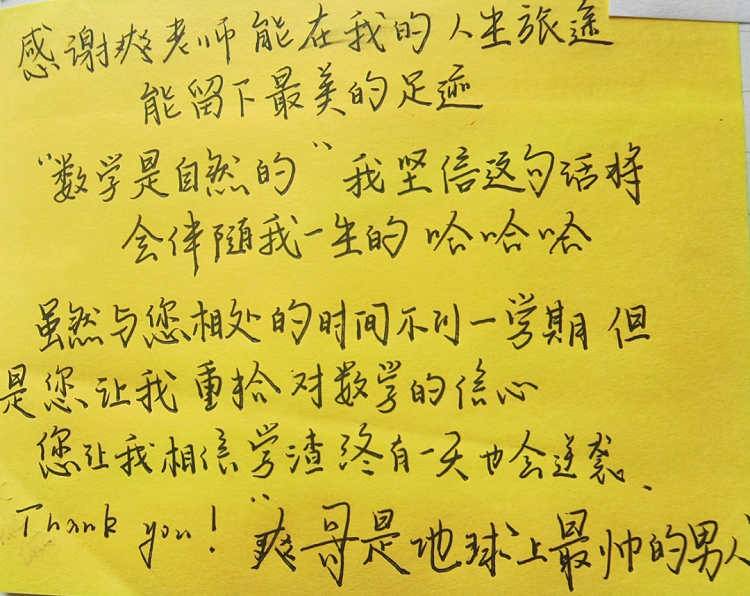 感谢爽老师能在我的人生旅途
能留下最美的足迹
“数学是自然的”我坚信这句话将
会伴随我一生的哈哈哈
虽然与您相处的时间不到一学期但
是您让我重拾对数学的信心
您让我相信学渣终有一天也会逆袭、
Thank you!“爽哥是地球上最帅的男人